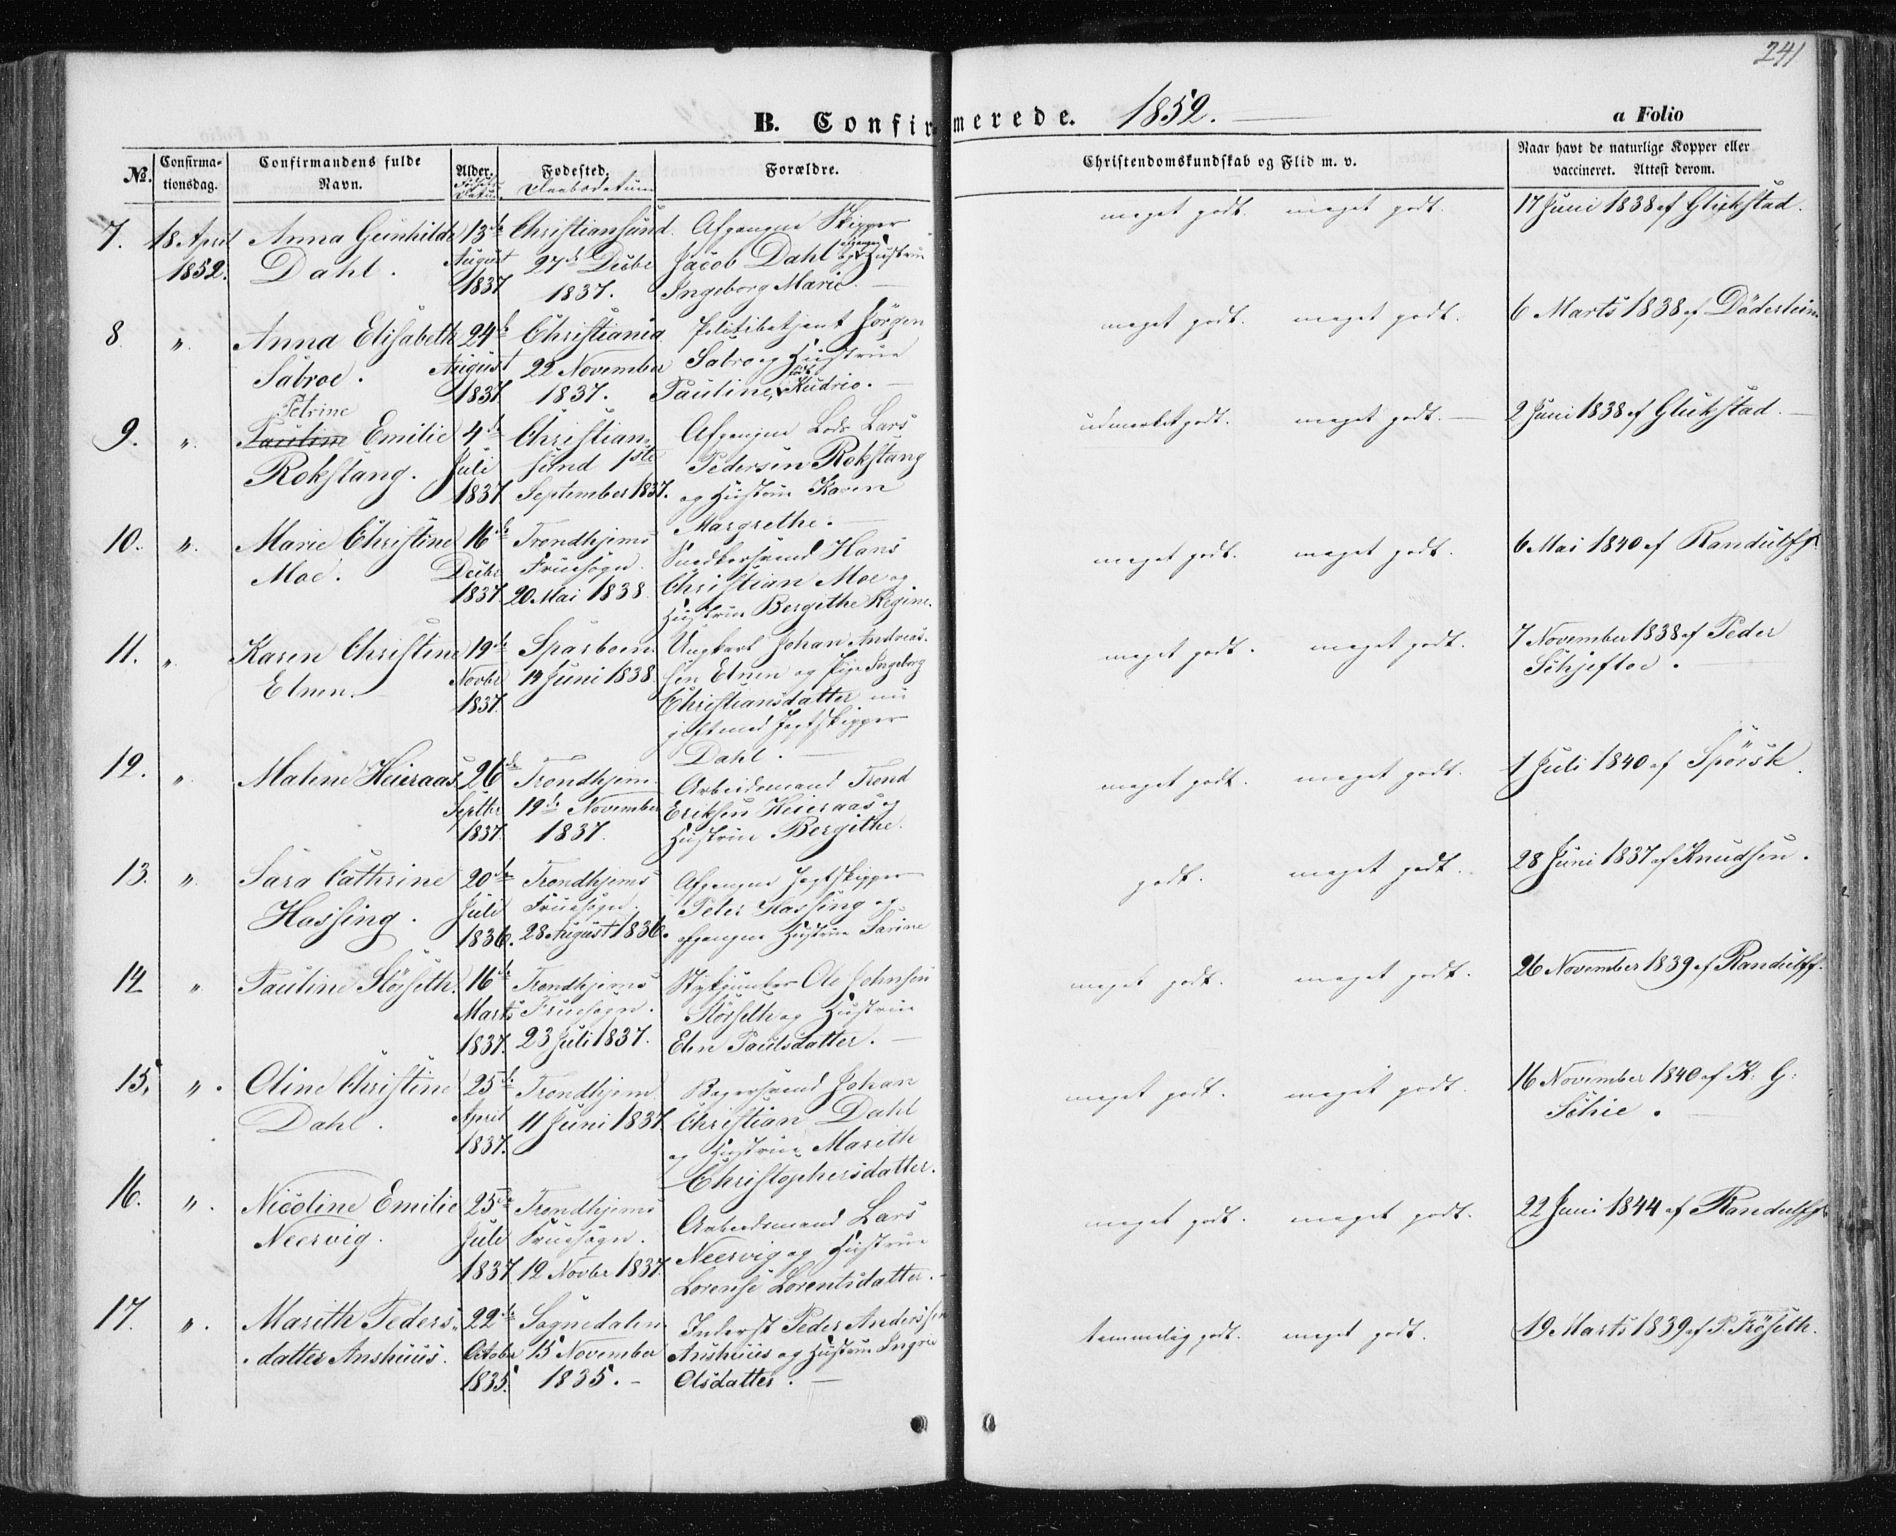 241
B. Confirmerede. 1852.
a Folio
No.
Confirmationsdag.
Confirmandens fulde Navn.
Alder.
Fødested.
Daabsdatum
Forældre.
Christendomskundskab og Flid m. v.
Naar havt de naturlige Kopper eller vaccineret. Attest derom.
7. 18 April 1852.
Anna Gunhilde
Dahl.
13de August 1837
Christiansund.
27de Decbr
1837.
Afgangne Skipper
Jacob Dahl og Hustrue
Ingeborg Marie.
meget godt. meget godt.
17 Juni 1838 af Glückstad.
8. ".
Anna Elisabeth
Sabroe.
24de August 1837
Christiania
22 November
1837.
Politibetjent Jörgen
Sabroe og Hustrue
Pauline Kudrio.
meget godt. meget godt.
6 Marts 1838 af Döderlein
9. ".
Petrine
Pauline Emilie
Rokstang.
4de Juli 1837
Christian
sund 1ste
September 1837.
Afgangne Lods Lars
Pedersen Rokstang
og Hustrue Karen
Margrethe.
udmærket godt. meget godt.
2 Juni 1838 af Glückstad.
10. ".
Marie Christine
Moe.
16de Decbr 1837
Trondhjems
Fruesogn.
20 Mai 1838
Snedkersvend Hans
Christian Moe og
Hustrue Bergithe Regine.
meget godt. meget godt.
6 Mai 1840 af Randulff.
11. "
Karen Christine
Elnen.
19de Novbr 1837
Sparboen
14 Juni 1838
Ungkarl Johan Andreas-
sen Elnen og Pige Ingeborg
Christiansdatter nu
gift med Jagtskipper
Dahl.
meget godt. meget godt.
7 November 1838 af Peder
Schjeftoe.
12. "
Maline Heieraas
26de Septbr 1837
Trondhjem
19de November
1837.
Arbeidsmand Trond
Eriksen Heieraas og
Hustrue Bergithe.
meget godt. meget godt.
1 Juli 1840 af Spörck.
13. ".
Sara Cathrine
Hassing.
20de Juli 1836.
Trondhjems
Fruesogn.
28 August 1836.
Afgangne Jagtskipper
Peter Hassing og
afgangne Hustrue Sarine
godt. meget godt.
28 Juni 1837 af Knudsen.
14 "
Pauline Störseth.
16de Marts 1837.
Trondhjems
Fruesogn.
23 Juli 1837.
Stykjunker Ole Johnsen
Störseth og Hustrue
Elen Paulsdatter.
meget godt. meget godt.
26 November 1839 af Randulff.
15. ".
Oline Christine
Dahl.
25de April 1837.
Trondhjem
11 Juni 1837.
Bagersvend Johan
Christian Dahl
og Hustrue Marith
Christophersdatter.
meget godt. meget godt.
16 November 1840 af K: G:
Schie.
16. ".
Nicoline Emilie
Neervig.
25de Juli 1837
Trondhjems
Fruesogn.
12 Novbr 1837
Arbeidsmand Lars
Neervig og Hustrue
Lorense Lorentsdatter.
meget godt. meget godt.
22 Juni 1844 af Randulff
17. ".
Marith Peders-
datter Anshuus.
22de October 1835.
Sognedalen
15 November
1835.
Inderst Peder Anderssen
Anshuus og Hustrue Ingri
Olsdatter.
temmelig godt. meget godt.
19 Marts 1839 af P. Fröseth.